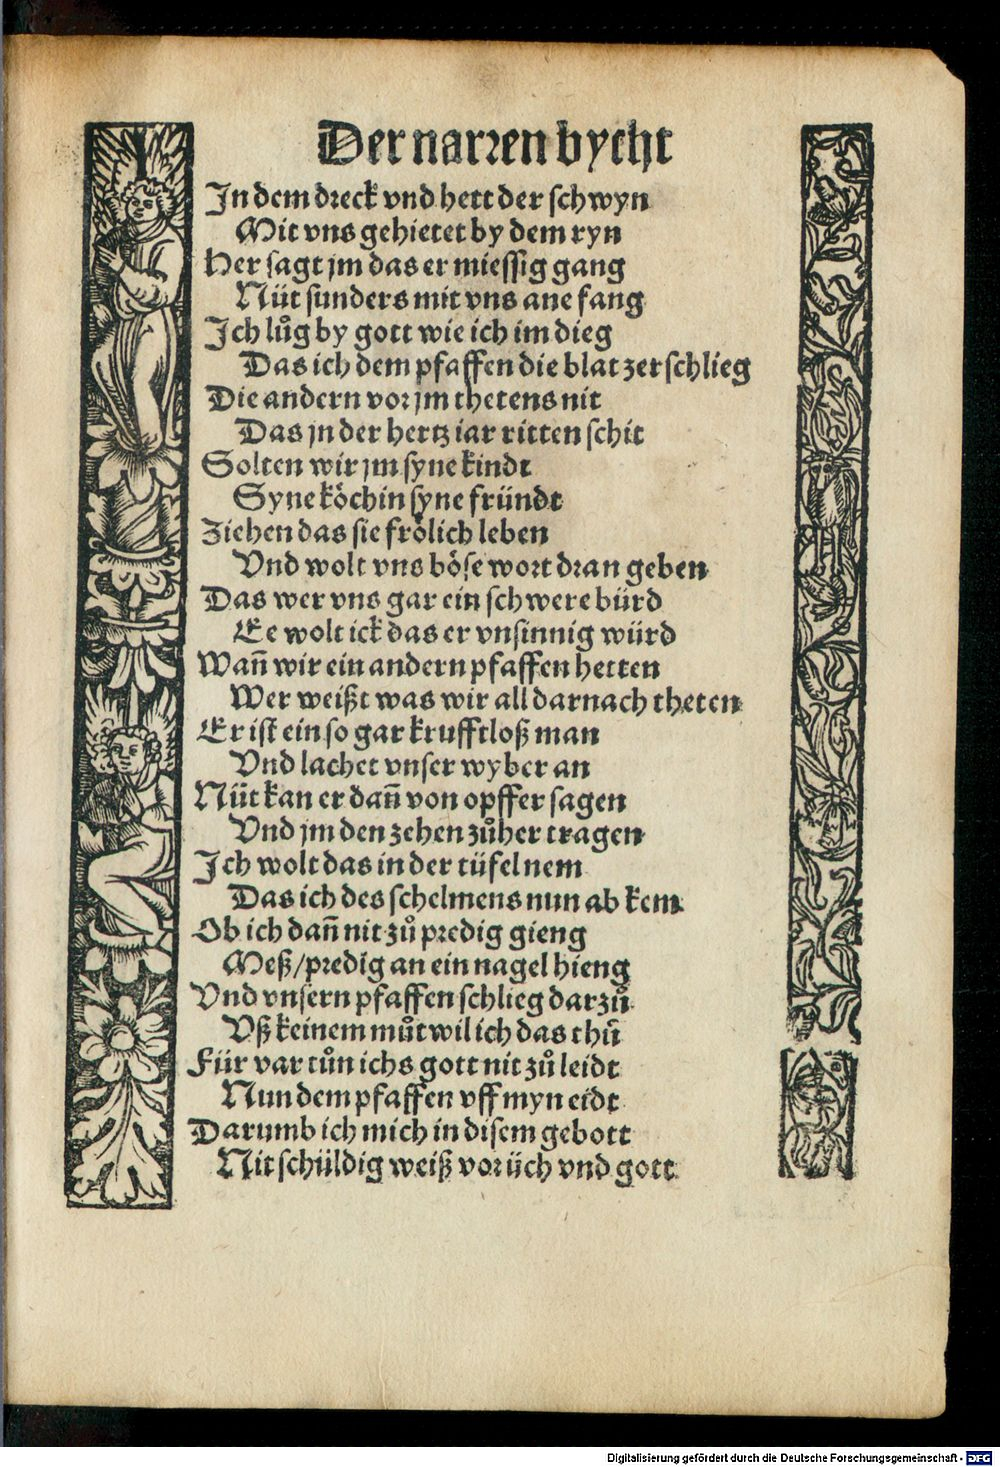 Der narren bycht
In dem dreck vnd hett der schwyn
Mit vns gehietet by dem ryn
Her sagt jm das er miessig gang
Nüt sunders mit vns ane fang
Ich lůg by gott wie ich im dieg
Das ich dem pfaffen die blat zerschlieg
Die andern vor jm thetens nit
Das jn der hertz iar ritten schit
Solten wir jm syne kindt
Syne köchin syne fründt
Ziehen das sie frölich leben
Vnd wolt vns böse wort dran geben
Das wer vns gar ein schwere bürd
Ee wolt ick das er vnsinnig würd
Wañ wir ein andern pfaffen hetten
Wer weißt was wir all darnach theten
Er ist ein so gar krufftloß man
Vnd lachet vnser wyber an
Nüt kan er dañ von opffer sagen
Vnd jm den zehen zůher tragen
Ich wolt das in der tüfel nem
Das ich des schelmens nun ab kem
Ob ich dañ nit zů predig gieng
Meß/predig an ein nagel hieng
Vnd vnsern pfaffen schlieg darzů
Vß keinem můtwil ich das thů
Für var tůn ichs gott nit zů leidt
Nun dem pfaffen vff myn eidt
Darumb ich mich in disem gebott
Nit schüldig weiß vor üch vnd gott
Digitalisierung gefördert durch die Deutsche Forschungsgemeinschaft - DFG